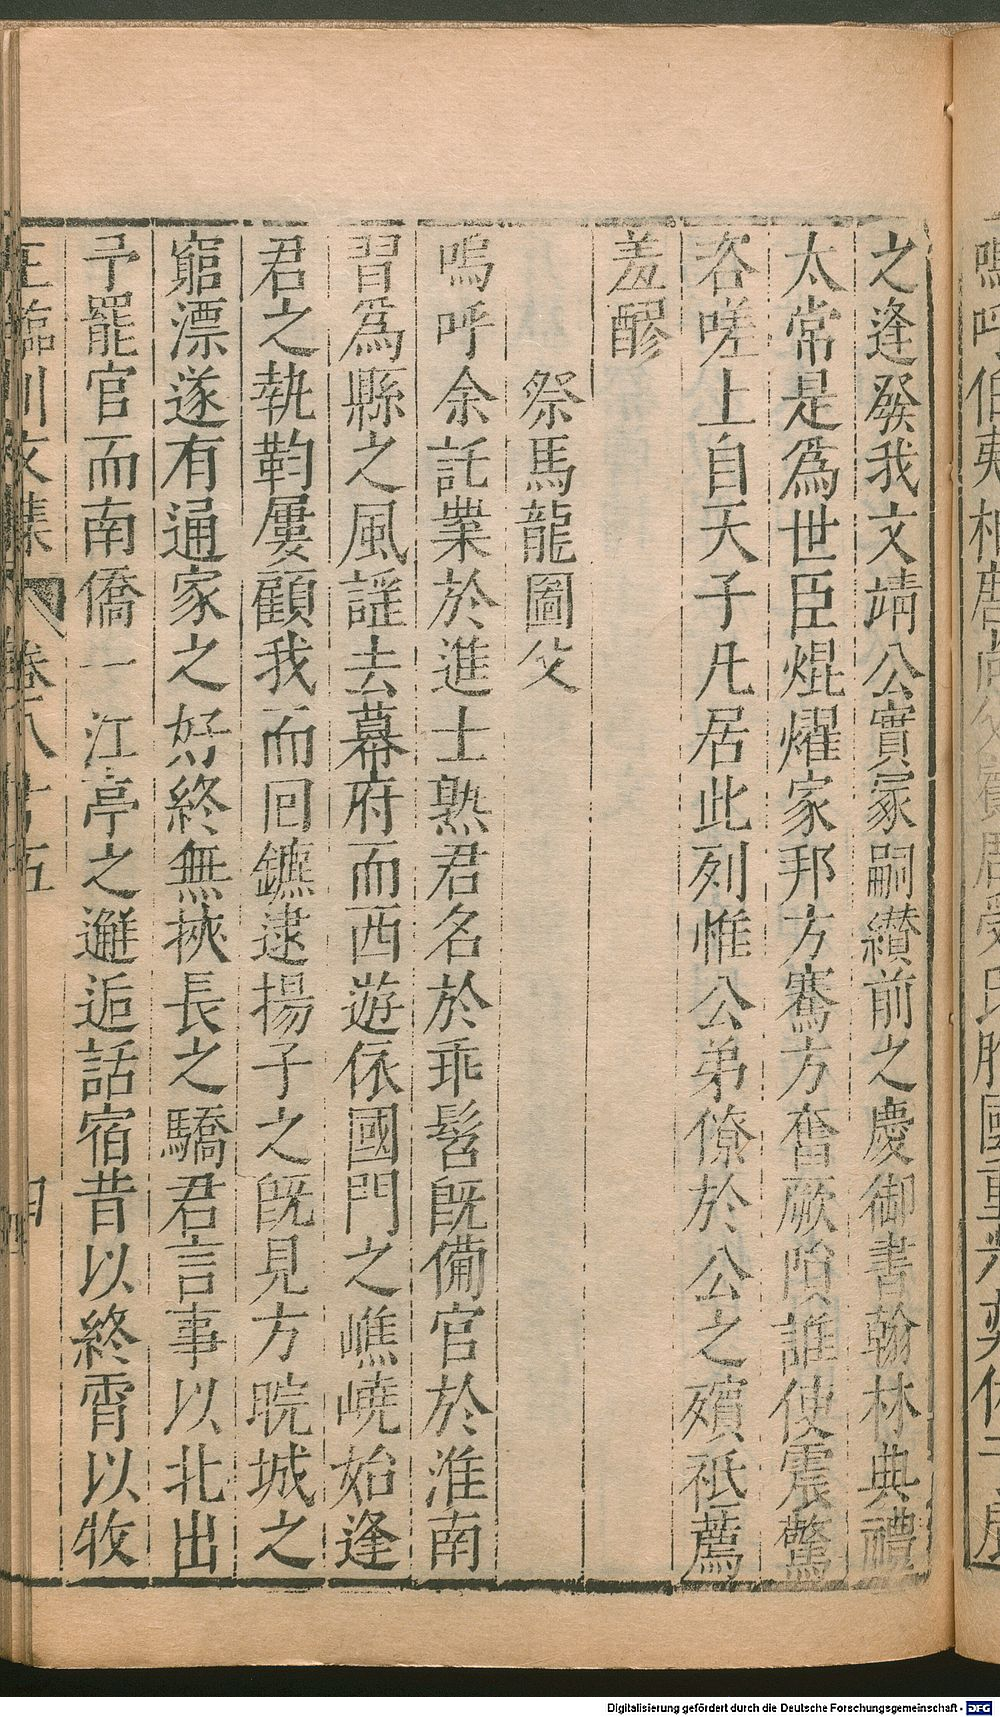 之逢發我文靖公實冢嗣纘前之慶御書翰林典禮
太常是爲世臣焜燿家邦方騫方奮厥隕誰使震驚
咨嗟上自天子凡居此列惟公弟僚於公之殯祗薦
羞醪
祭馬龍圖文
嗚呼余託業於進士熟君名於乖髫旣備官於淮南
習爲縣之風謡去幕府而西遊依國門之嶕嶢始逢
君之執靮屢顧我而回鑣逮揚子之旣見方晥城之
窮漂遂有通家之好終無挾長之驕君言事以北出
予罷官而南僑一江亭之邂逅話宿昔以終霄以牧
王臨川文集 卷八十五 四
Digitalisierung gefördert durch die Deutsche Forschungsgemeinschaft - DFG